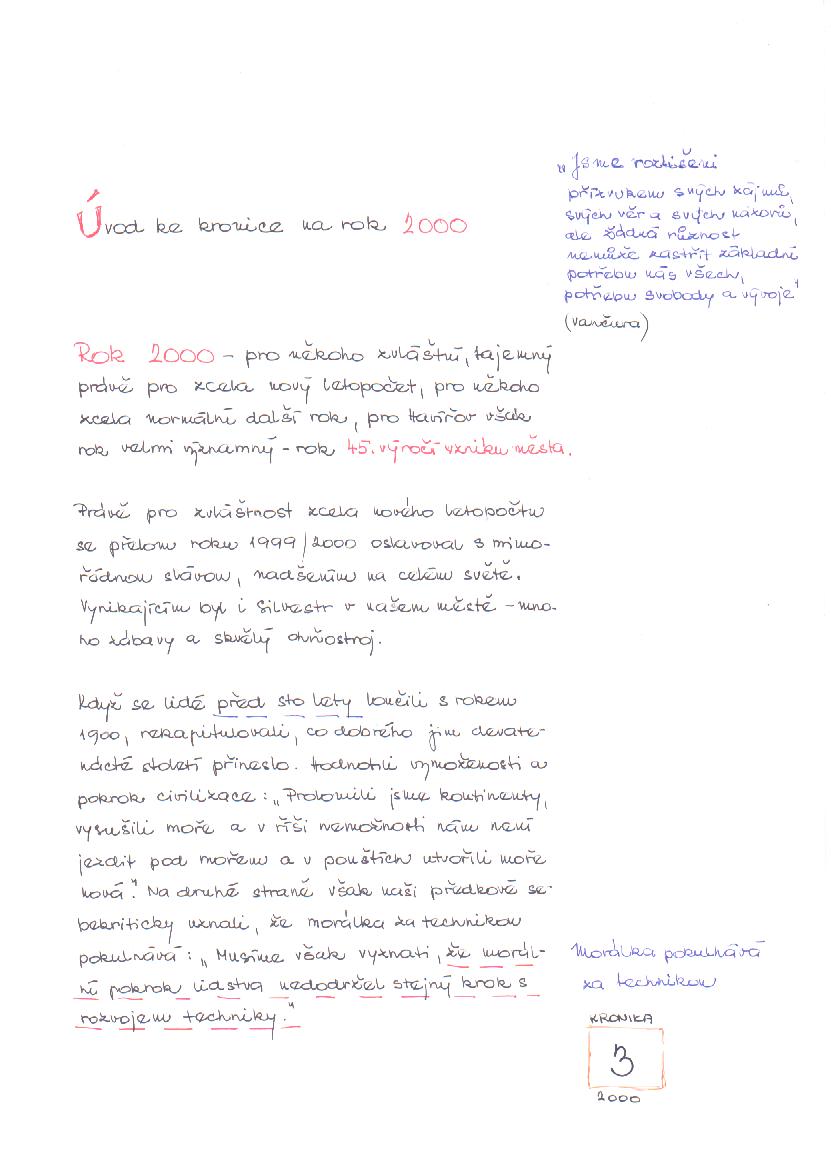 „Jsme rozlišeni
přízvukem svých zájmů,
svých věr a svých názorů,
ale žádná různost
nemůže zastřít základní
potřebu nás všech,
potřebu svobody a vývoje"
(Vančura)
Úvod ke kronice na rok 2000
Rok 2000 – pro někoho zvláštní, tajemný
právě pro zcela nový letopočet, pro někoho
zcela normální další rok, pro Havířov však
rok velmi významný – rok 45. výročí vzniku města.
Právě pro zvláštnost zcela nového letopočtu
se přelom roku 1999/2000 oslavoval s mimo-
řádnou slávou, nadšením na celém světě.
Vynikajícím byl i Silvestr v našem městě – mno-
ho zábavy a skvělý ohňostroj.
Když se lidé před sto lety loučili s rokem
1900, rekapitulovali, co dobrého jim devate-
nácté století přineslo. Hodnotili vymoženosti a
pokrok civilizace: „Prolomili jsme kontinenty,
vysušili moře a v říši nemožnosti nám není
jezdit pod mořem a v pouštích utvořili moře
nová". Na druhé straně však naši předkové se-
bekriticky uznali, že morálka za technikou
pokulhává: „Musíme však vyznati, že morál-
ní pokrok lidstva nedodržel stejný krok s
rozvojem techniky."
Morálka pokulhává
za technikou
KRONIKA
3
2000